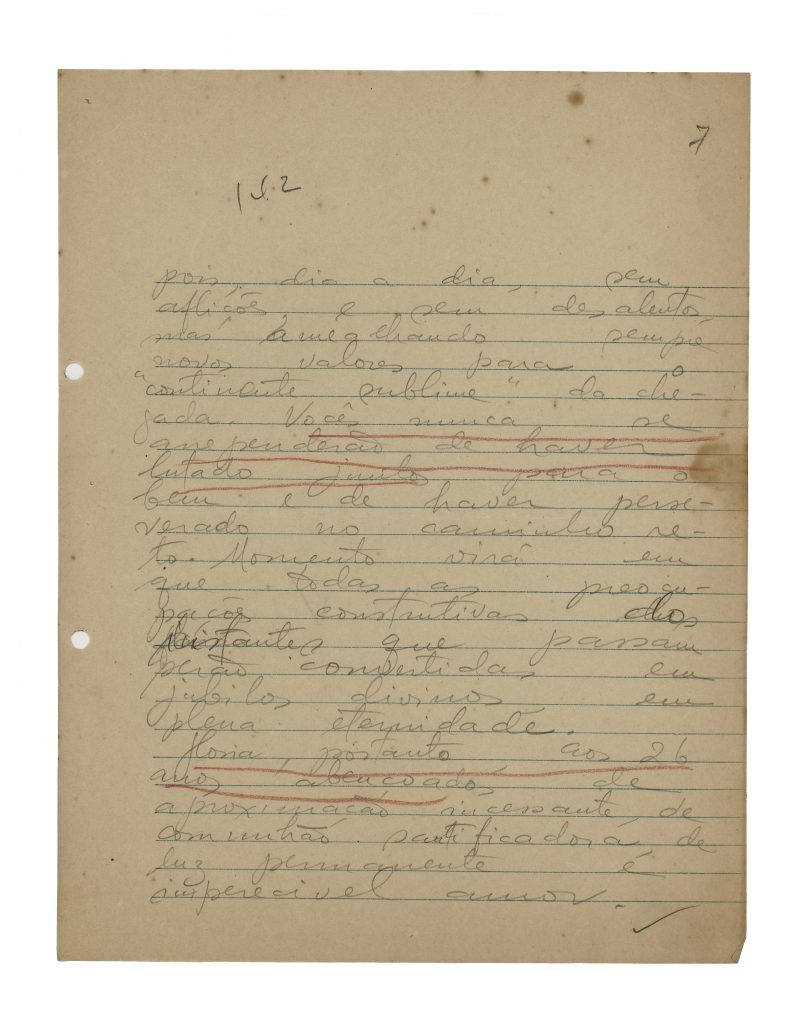 7
pois, dia a dia, sem
aflições e sem desalentos
mas amealhando sempre
novos valores para o
"continente sublime" da che-
gada. Vocês nunca se
arrependerão de haver
lutado juntos para o
bem e de haver perse-
verado no caminho re-
to. Momento virá em
que todas as preocu-
pações construtivas dos
instantes que passam
serão convertidas em
jubilos divinos em
plena eternidade.
Gloria, portanto, aos 26
anos abençoados de
aproximação incessante, de
comunhão santificadora, de
luz permanente e
imperecivel amor.